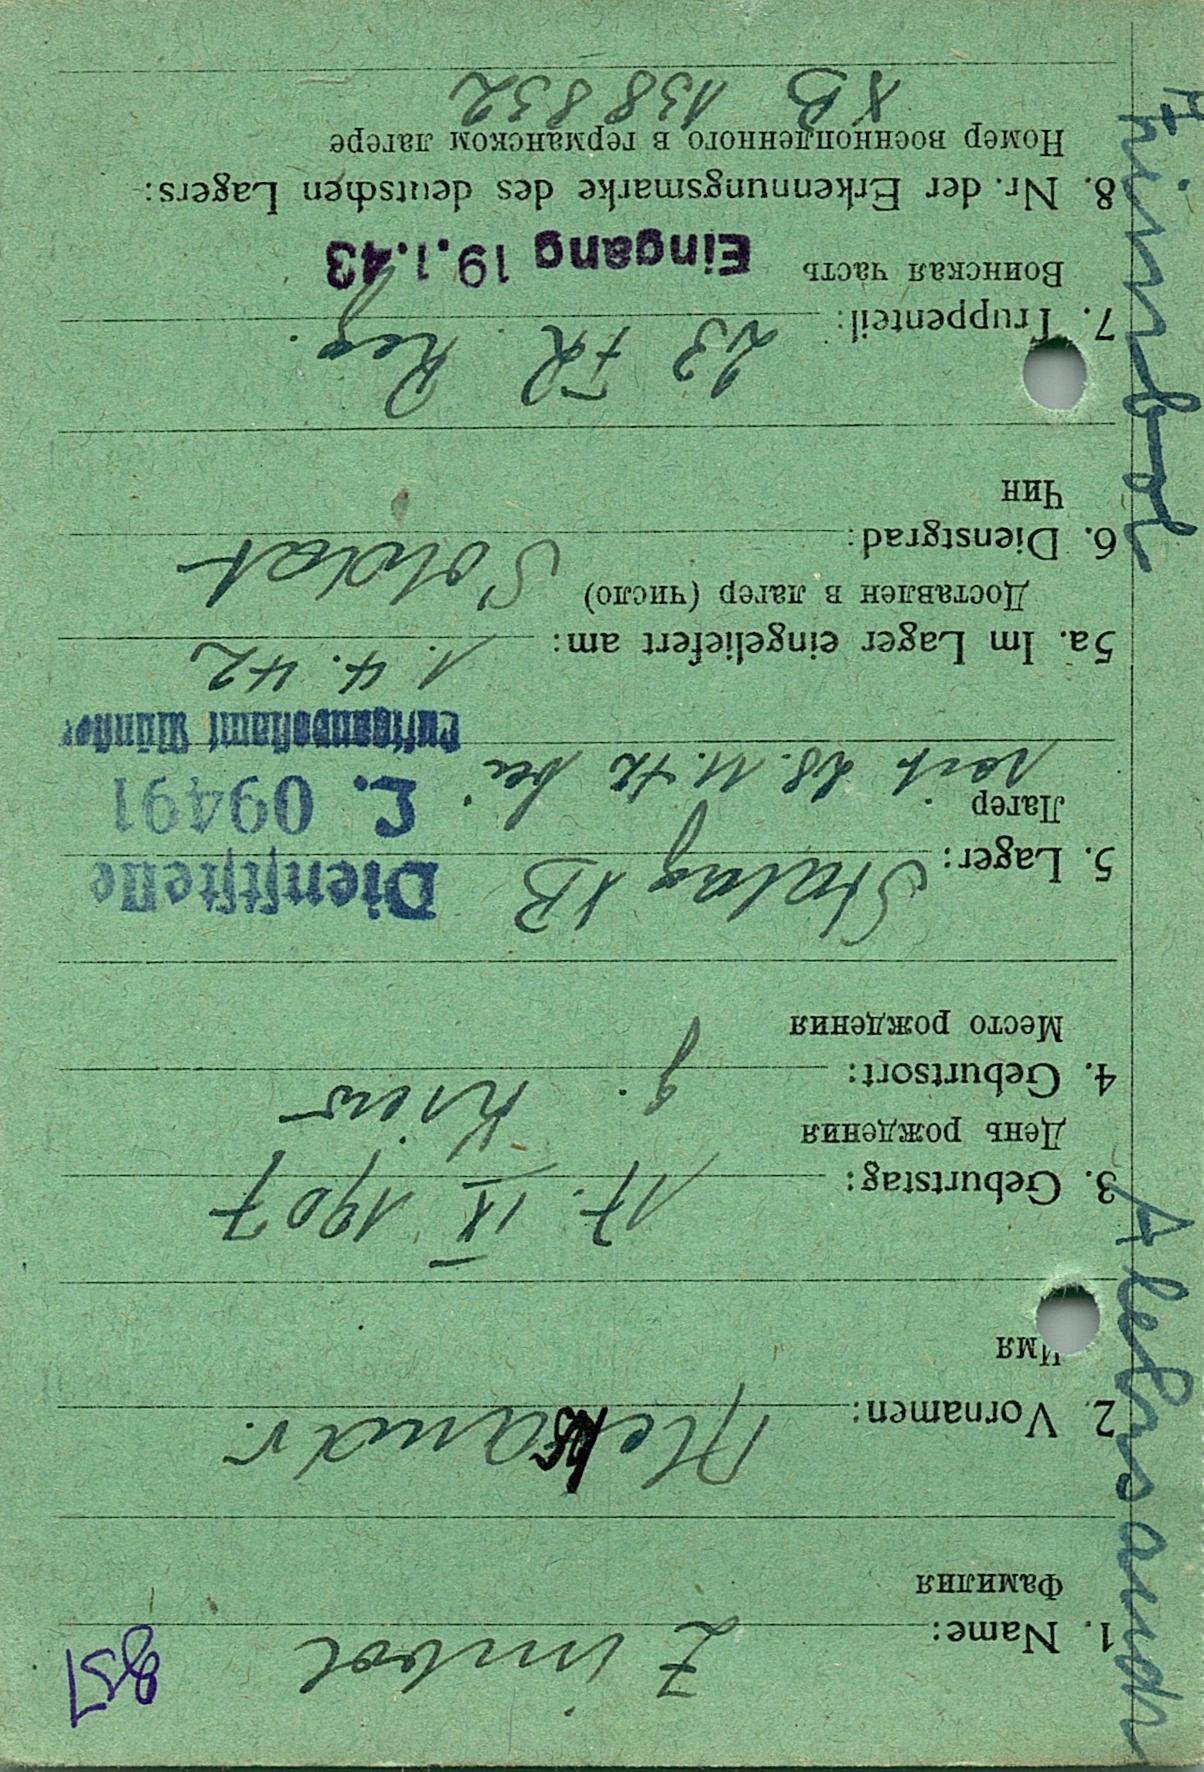 857
1. Name: Zimbol
Фамилия
2. Vornamen: Aleksandr.
Имя
3. Geburtstag: 17. IX 1907
День рождения
4. Geburtsort: Kiew
Место рождения
5. Lager: Stalag XB
Dienststelle
L. 09491
Luftgaupostamt Münster
Лагер
seit 28. 11. 42 bei
5a. Im Lager eingeliefert am: 1. 4. 42
Доставлен в лагер (число)
6. Dienstgrad: Soldat
Чин
7. Truppenteil: 23 Reg.
Воинская часть
Eingang 19.1.43
8. Nr. der Erkennungsmarke des deutschen Lagers:
Номер военнопленного в германском лагере
XB 138832
Aleksandr